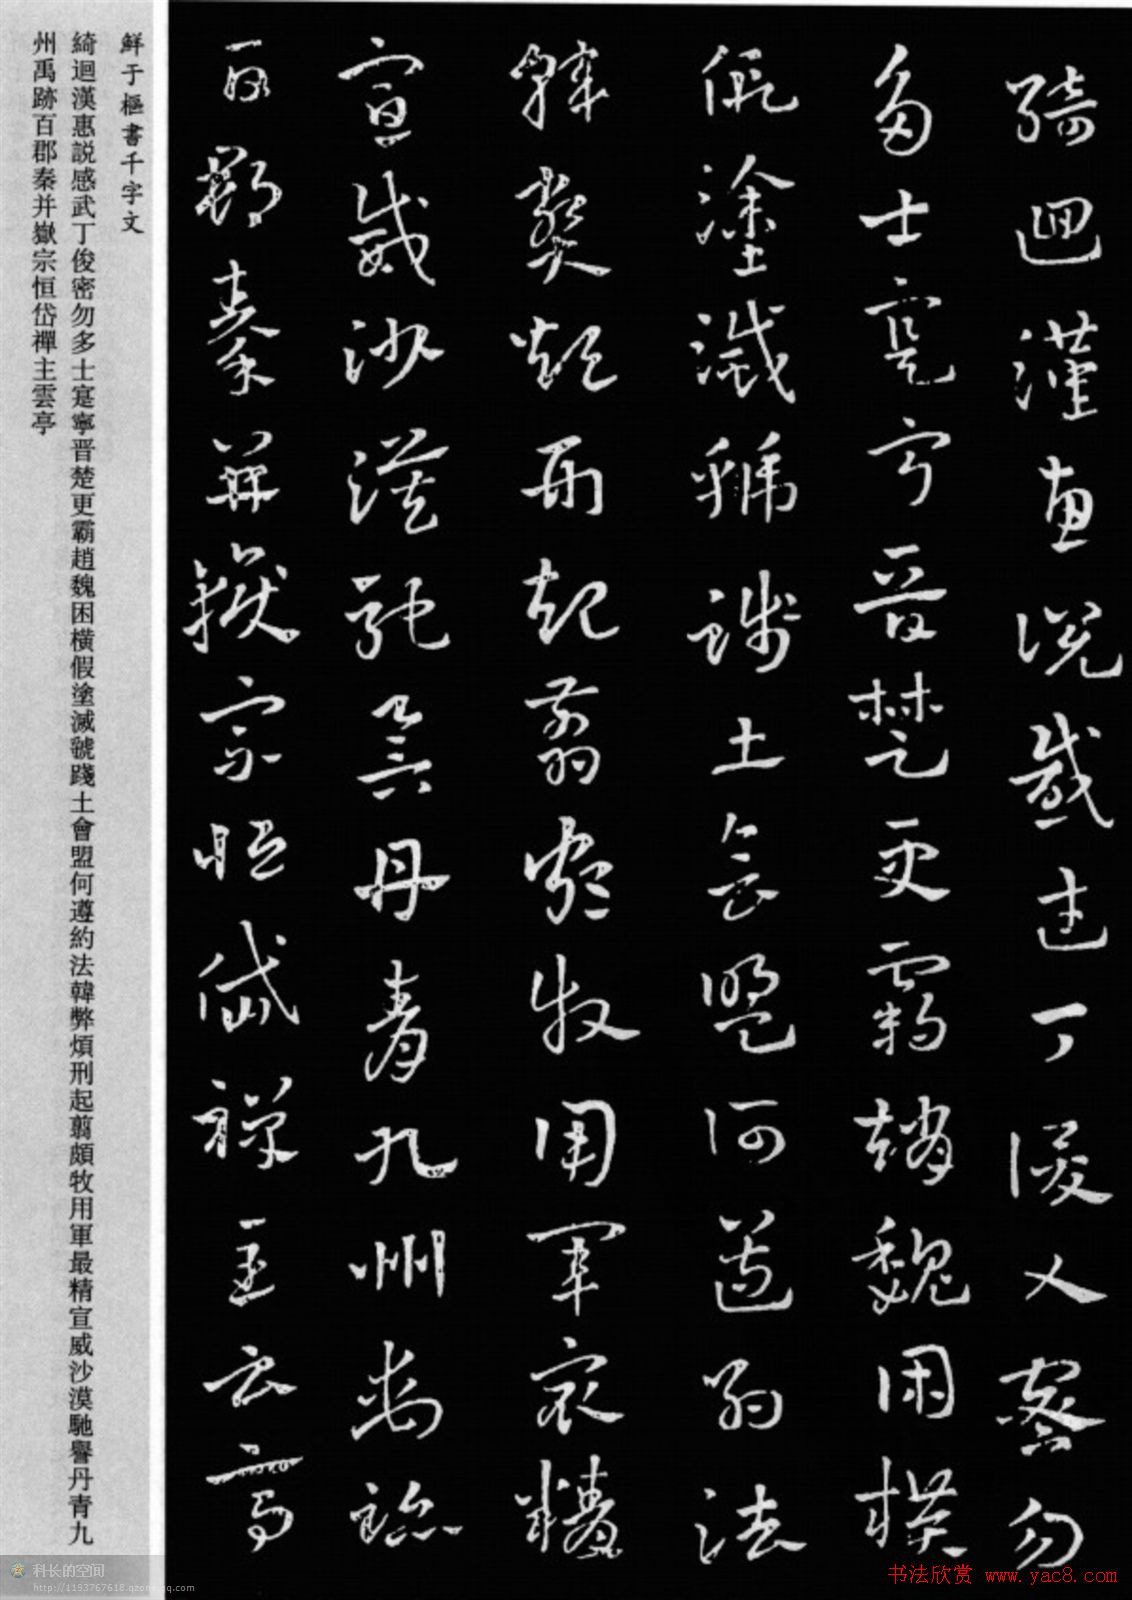 綺迴漢惠説感武丁俊乂密勿
多士寔寧晉楚更霸趙魏困橫
假塗滅虢踐土會盟何遵約法
韓弊煩刑起翦頗牧用軍最精
宣威沙漠馳譽丹青九州禹跡
百郡秦并嶽宗恒岱禪主云亭
鮮于樞書千字文
綺迴漢惠説感武丁俊密勿多士寔寧晋楚更霸趙魏困横假塗滅虢踐土會盟何遵約法韓弊煩刑起翦頗牧用軍最精宣威沙漠馳譽丹青九
州禹跡百郡秦并嶽宗恒岱禪主雲亭
科长的空间
http://1193767618.qzone.qq.com
书法欣赏 www.yac8.com